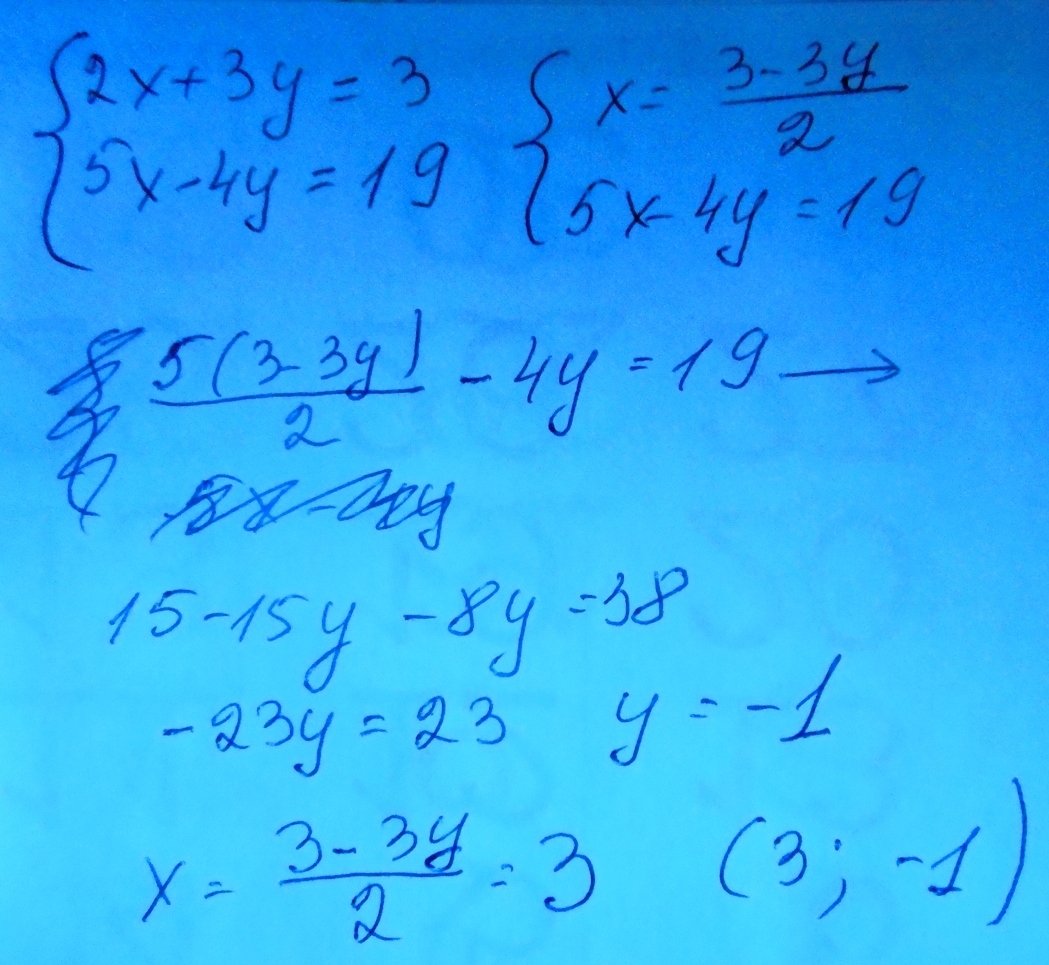 {2x+3y=3 {x=(3-3y)/2
5x-4y=19 5x-4y=19
5(3-3y)/2 - 4y = 19 →
15-15y-8y=38
-23y=23 y=-1
x=(3-3y)/2=3 (3; -1)